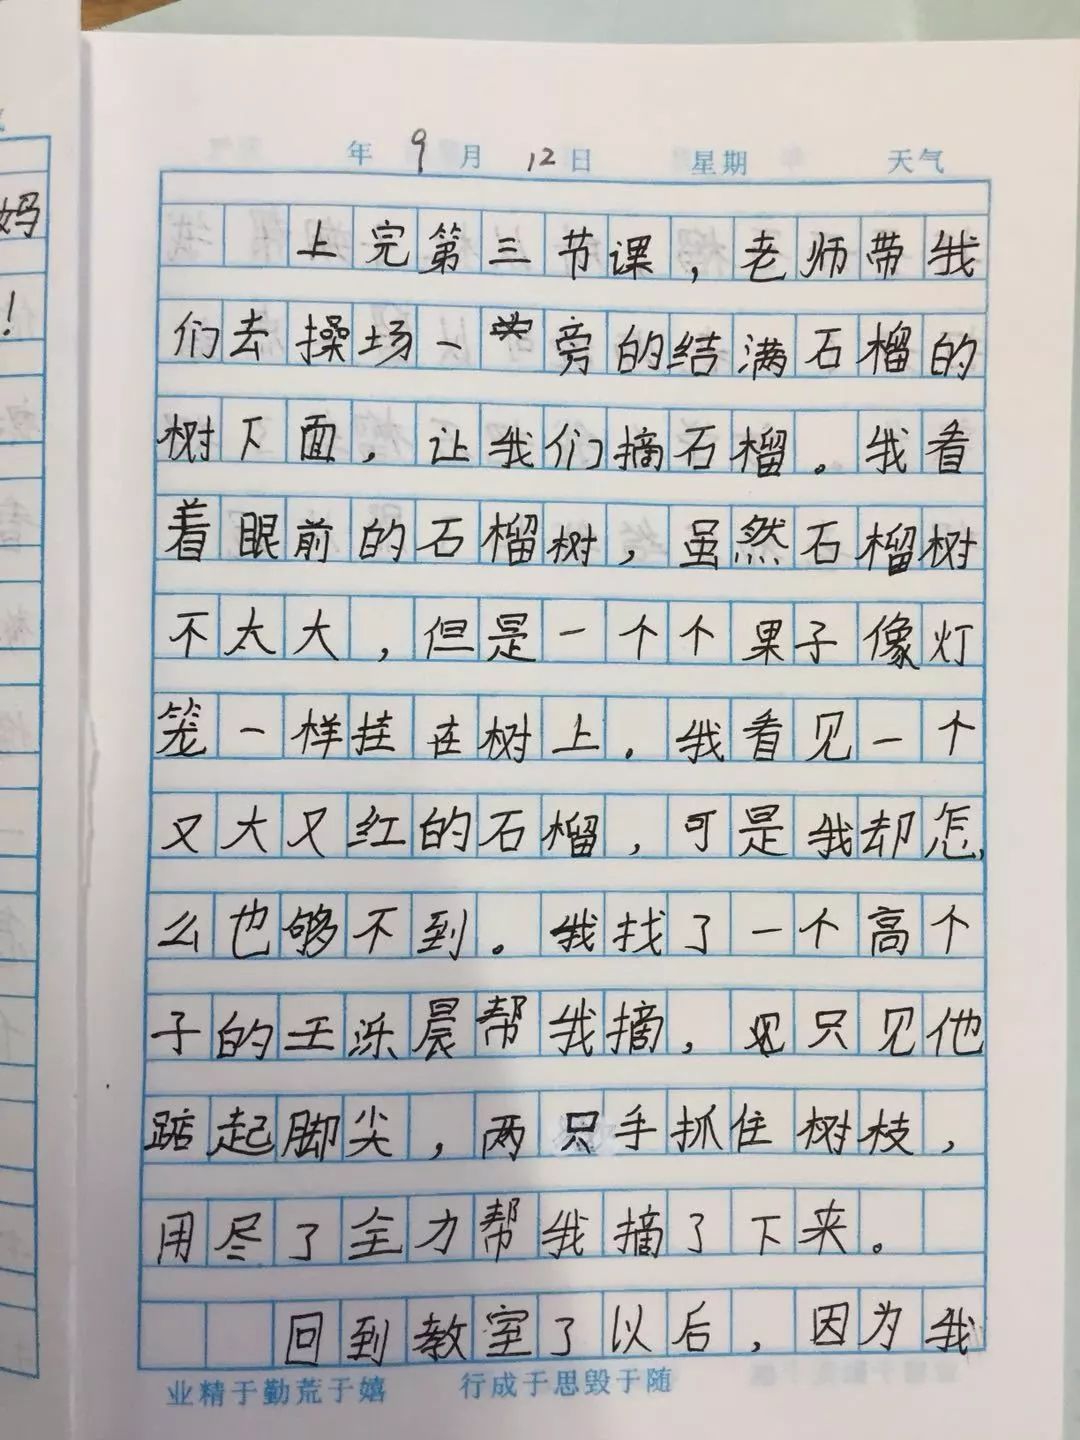 妈
！
年 9 月 12 日 星期 天气
上完第三节课，老师带我
们去操场一旁的结满石榴的
树下面，让我们摘石榴。我看
着眼前的石榴树，虽然石榴树
不太大，但是一个个果子像灯
笼一样挂在树上。我看见一个
又大又红的石榴，可是我却怎
么也够不到。我找了一个高个
子的王泺晨帮我摘，只见他
踮起脚尖，两只手抓住树枝，
用尽了全力帮我摘了下来。
回到教室了以后，因为我
业精于勤荒于嬉 行成于思毁于随